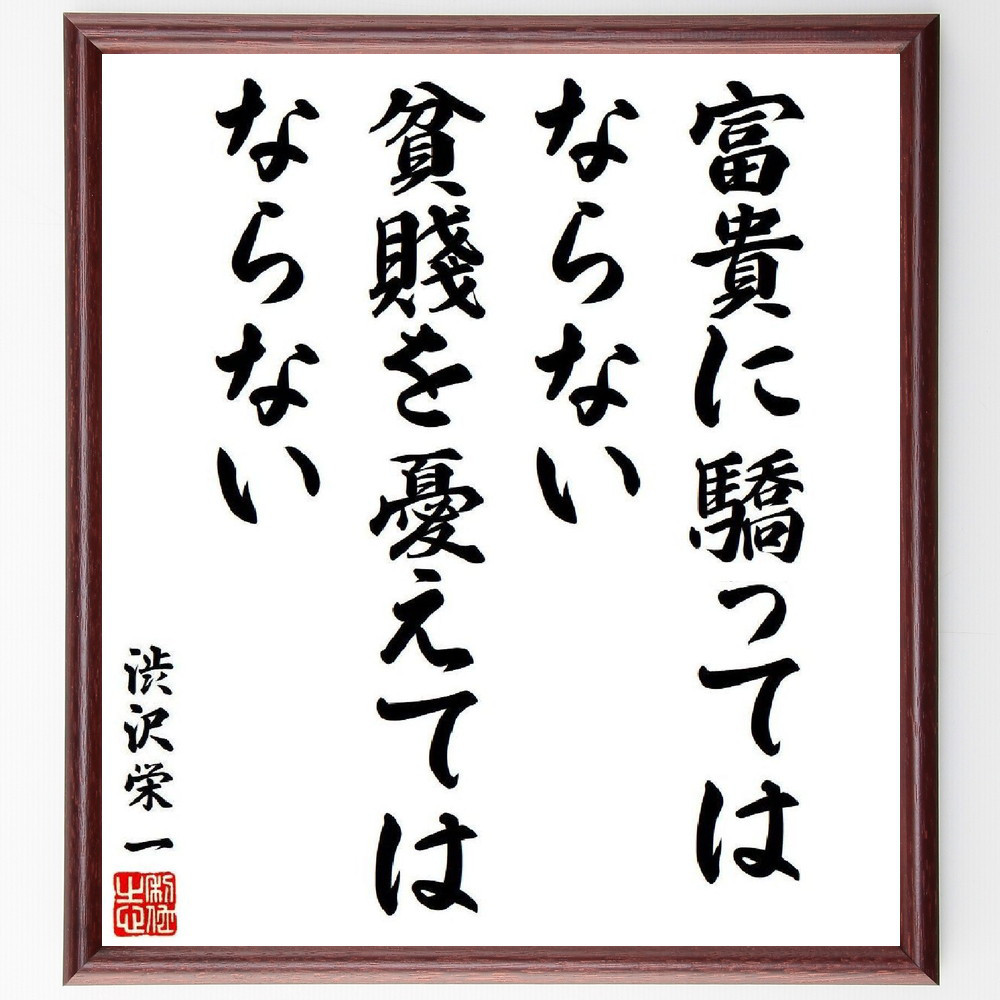 富貴に驕っては
ならない
貧賤を憂えては
ならない
渋沢栄一